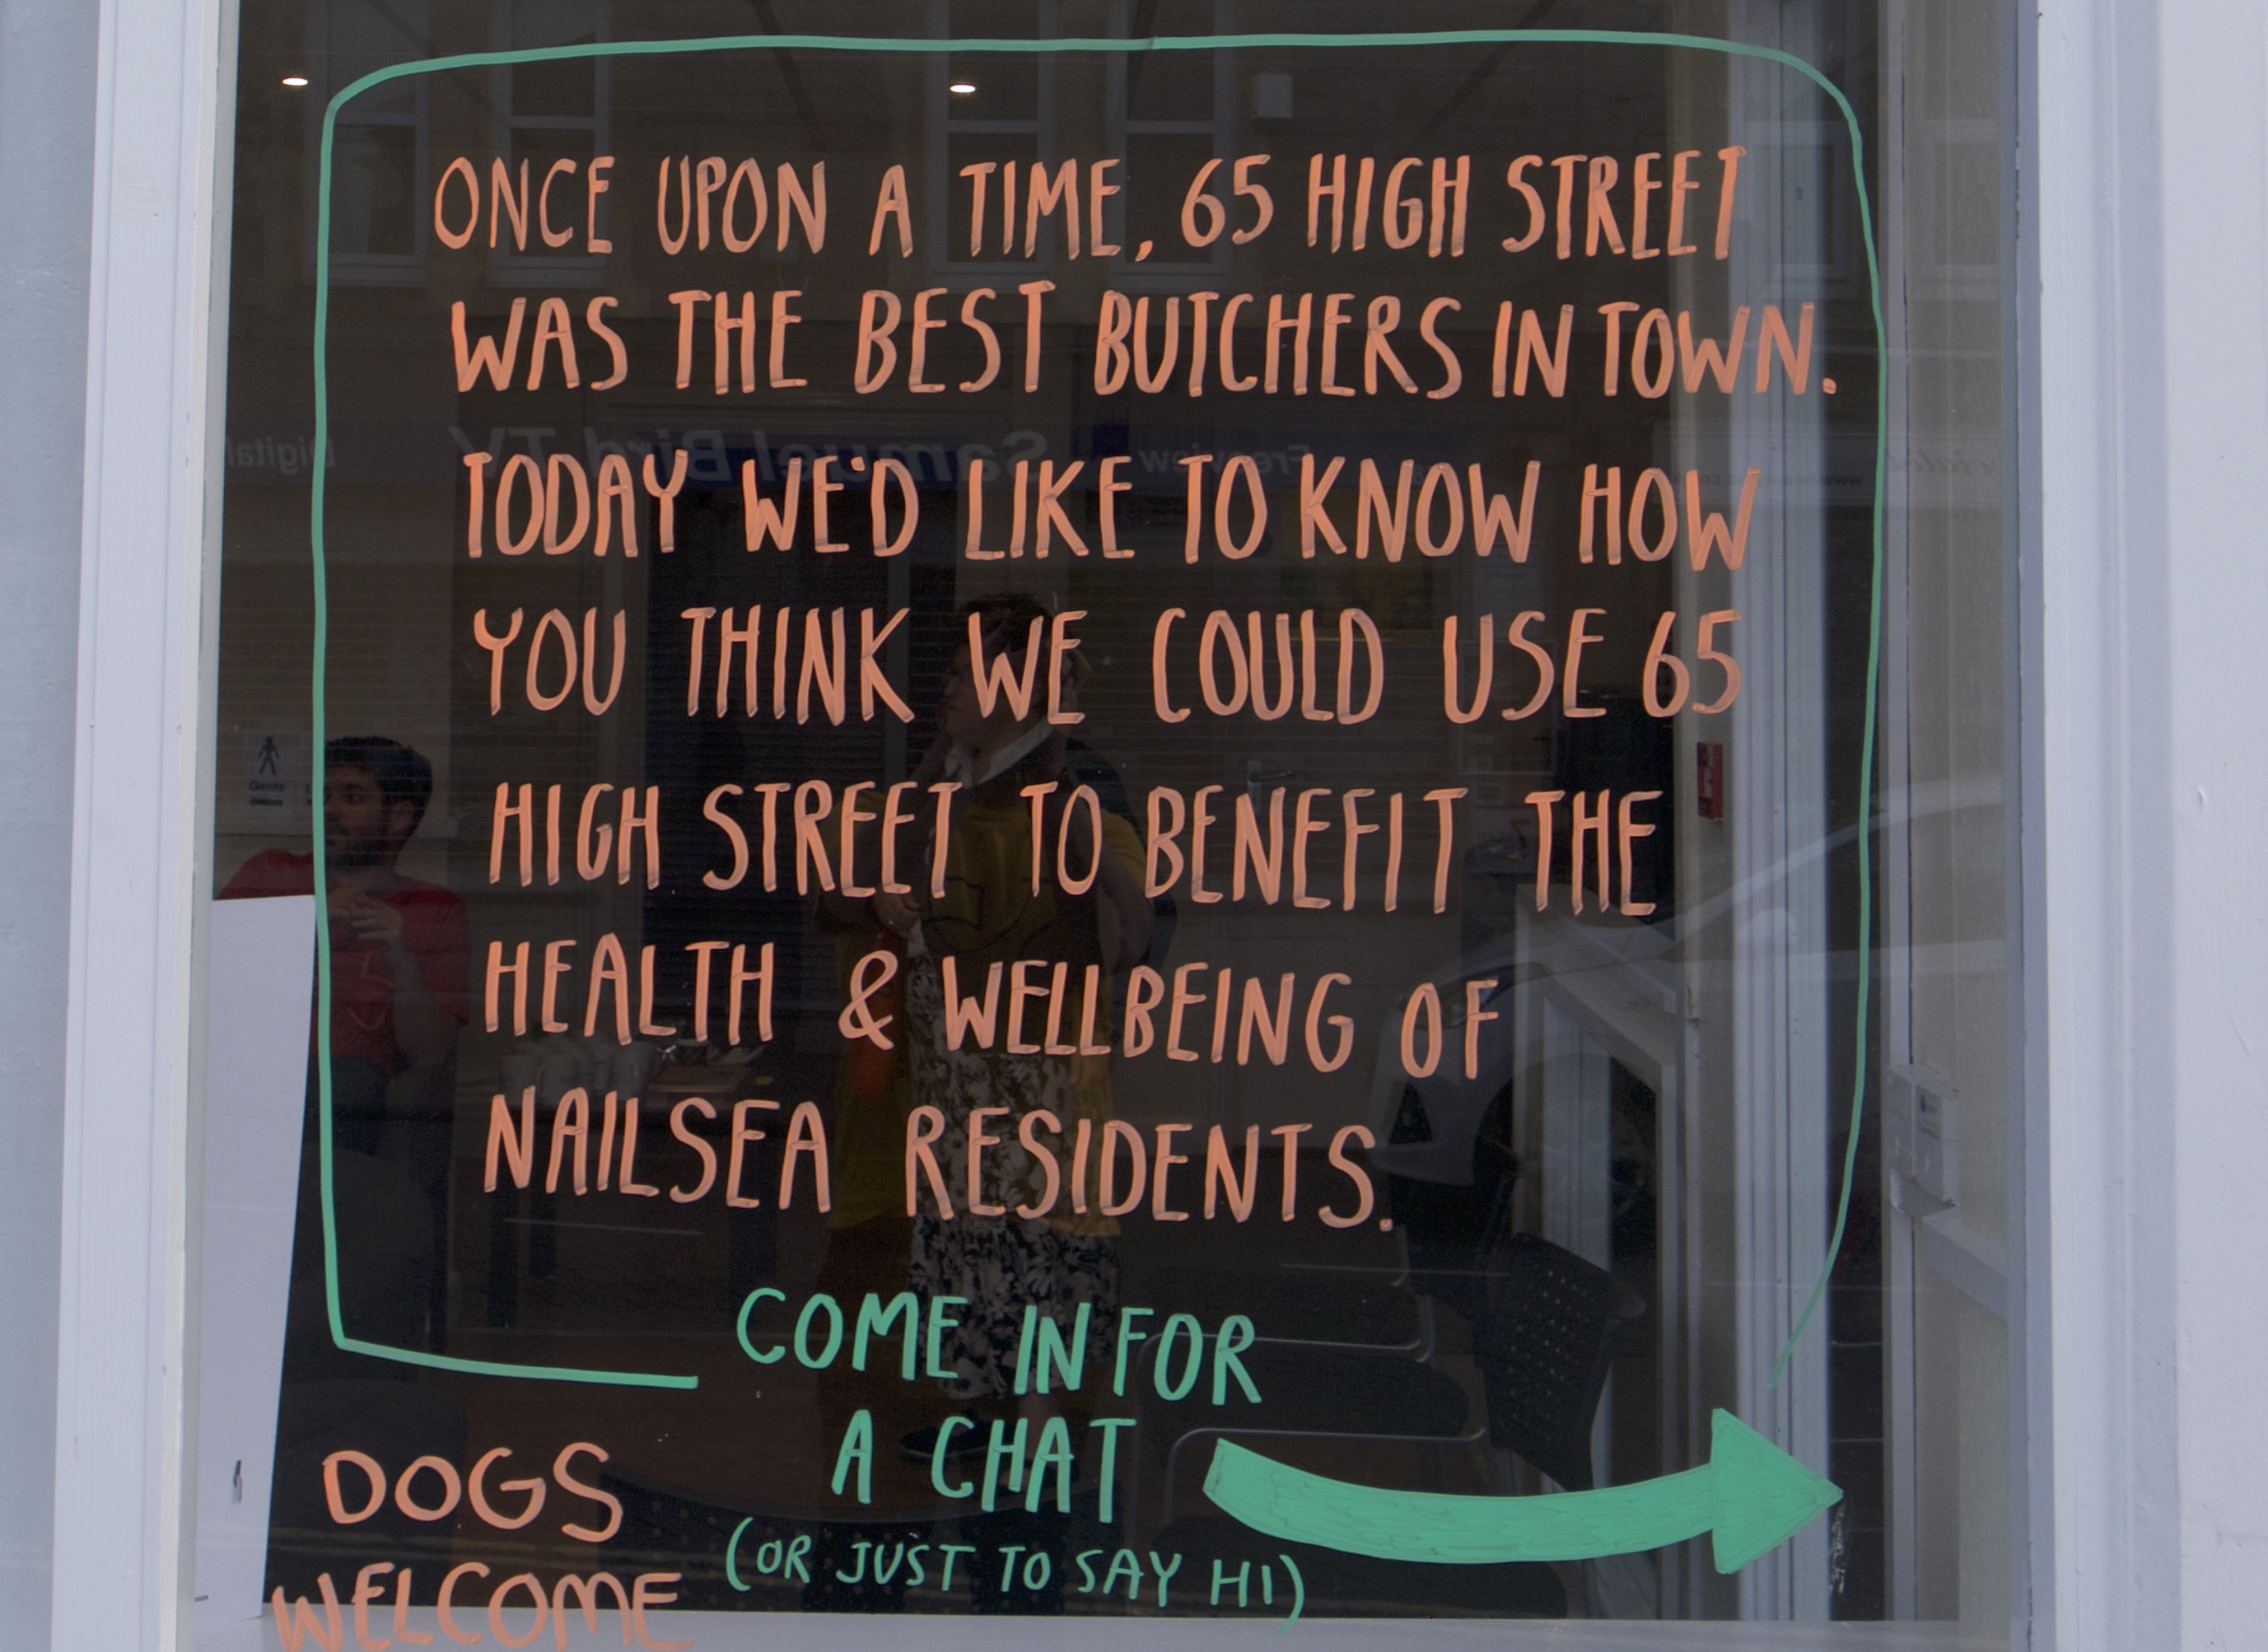 ONCE UPON A TIME, 65 HIGH STREET
WAS THE BEST BUTCHERS IN TOWN.
TODAY WE'D LIKE TO KNOW HOW
YOU THINK WE COULD USE 65
HIGH STREET TO BENEFIT THE
HEALTH & WELLBEING OF
NAILSEA RESIDENTS.
COME IN FOR
A CHAT
(OR JUST TO SAY HI)
DOGS
WELCOME
Digital
Samuel Bird TV
Freeview
Gents